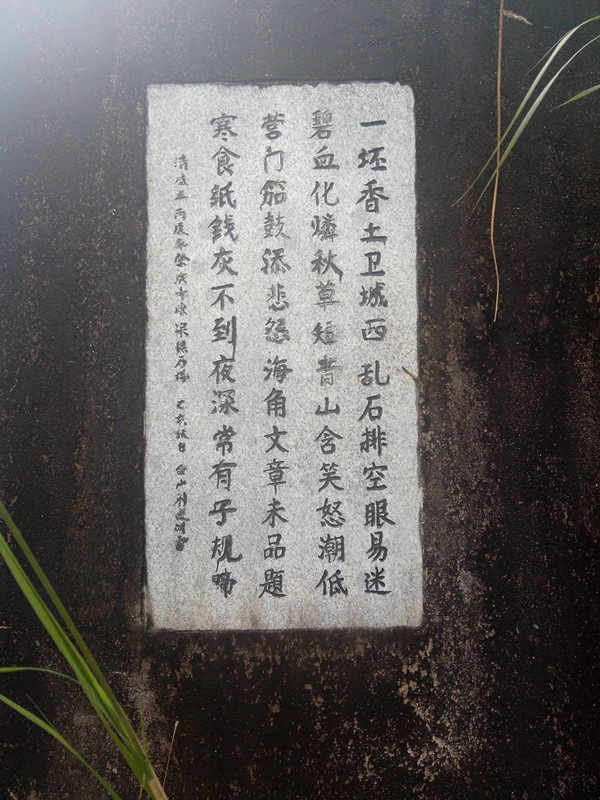 一坯香土卫城西 乱石排空眼易迷
碧血化燐秋草短 青山含笑怒潮低
营门笳鼓添悲怨 海角文章未品题
寒食纸钱灰不到 夜深常有子规啼